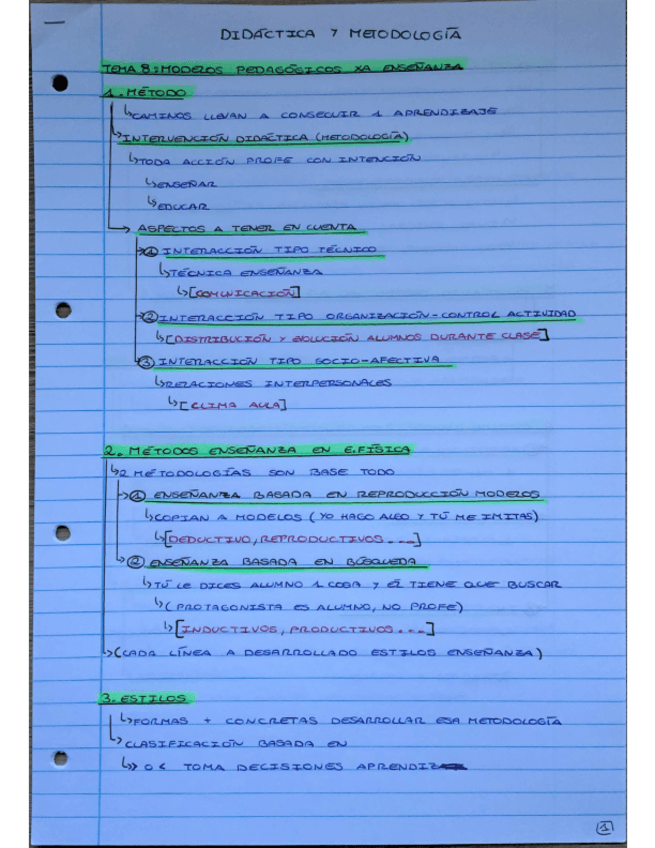 DIDÁCTICA Y METODOLOGÍA
TEMA 8: MODELOS PEDAGÓGICOS XA ENSEÑANZA
1. MÉTODO
↳CAMINOS LLEVAN A CONSEGUIR 1 APRENDIZAJE
↳INTERVENCIÓN DIDÁCTICA (METODOLOGÍA)
↳TODA ACCIÓN PROFE CON INTENCIÓN
↳ENSEÑAR
↳EDUCAR
→ ASPECTOS A TENER EN CUENTA
→① INTERACCIÓN TIPO TÉCNICO
↳TÉCNICA ENSEÑANZA
↳[COMUNICACIÓN]
→② INTERACCIÓN TIPO ORGANIZACIÓN-CONTROL ACTIVIDAD
↳[DISTRIBUCIÓN Y EVOLUCIÓN ALUMNOS DURANTE CLASE]
③ INTERACCIÓN TIPO SOCIO-AFECTIVA
↳RELACIONES INTERPERSONALES
↳[CLIMA AULA]
2. MÉTODOS ENSEÑANZA EN E.FÍSICA
↳2 METODOLOGÍAS SON BASE TODO
→① ENSEÑANZA BASADA EN REPRODUCCIÓN MODELOS
↳COPIAN A MODELOS (YO HAGO ALGO Y TÚ ME IMITAS)
↳[DEDUCTIVO, REPRODUCTIVOS...]
↳② ENSEÑANZA BASADA EN BÚSQUEDA
↳TÚ LE DICES ALUMNO 1 COSA Y ÉL TIENE QUE BUSCAR
↳(PROTAGONISTA ES ALUMNO, NO PROFE)
↳[INDUCTIVOS, PRODUCTIVOS...]
↳(CADA LÍNEA A DESARROLLADO ESTILOS ENSEÑANZA)
3. ESTILOS
↳FORMAS + CONCRETAS DESARROLLAR ESA METODOLOGÍA
↳CLASIFICACIÓN BASADA EN
↳> O < TOMA DECISIONES APRENDIZ
1